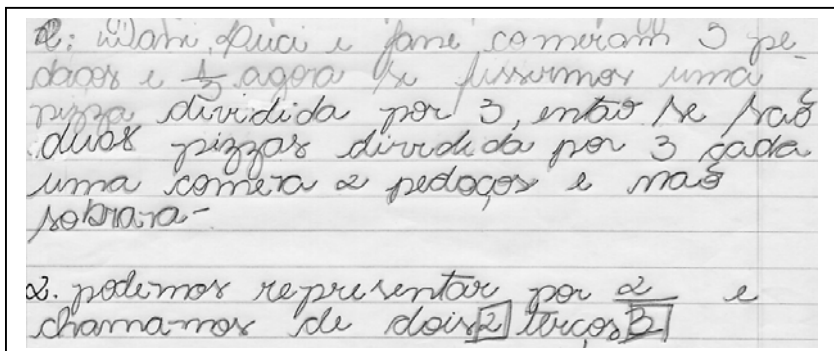 R: Dani, Luci e Jane comeram 3 pe-
daços e 1/3 agora se fissermos uma
pizza dividida por 3, então se são
duas pizzas dividida por 3 cada
uma comera 2 pedaços e não
sobrara-
2. podemos representar por 2 e
chamamos de dois 2 terços 3